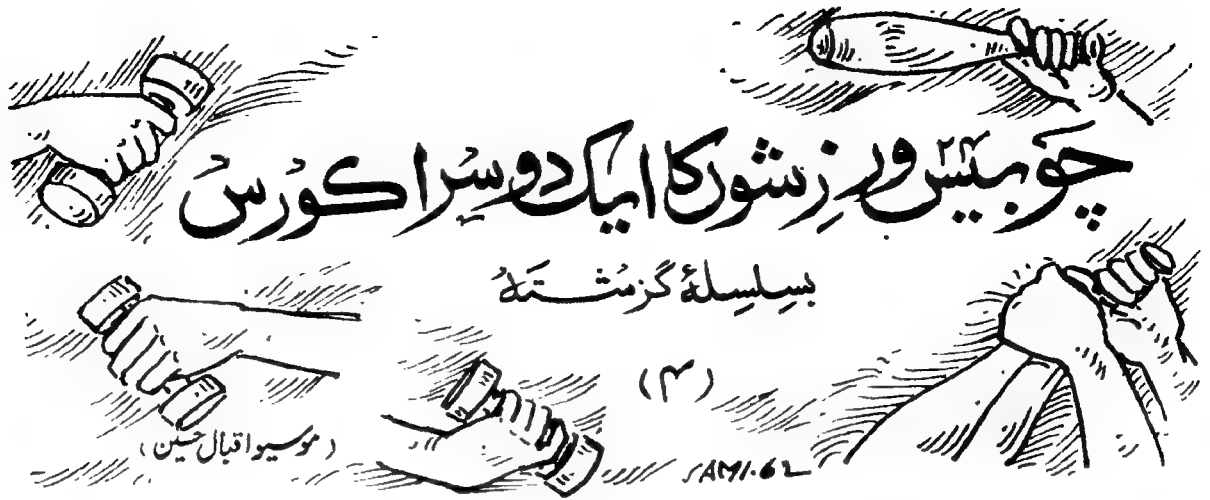 چوبیس ورزشوں کا ایک دوسرا کورس
بسلسلۂ گزشتہ
(۴)
(موسیو اقبال حسین)
SAMI.62